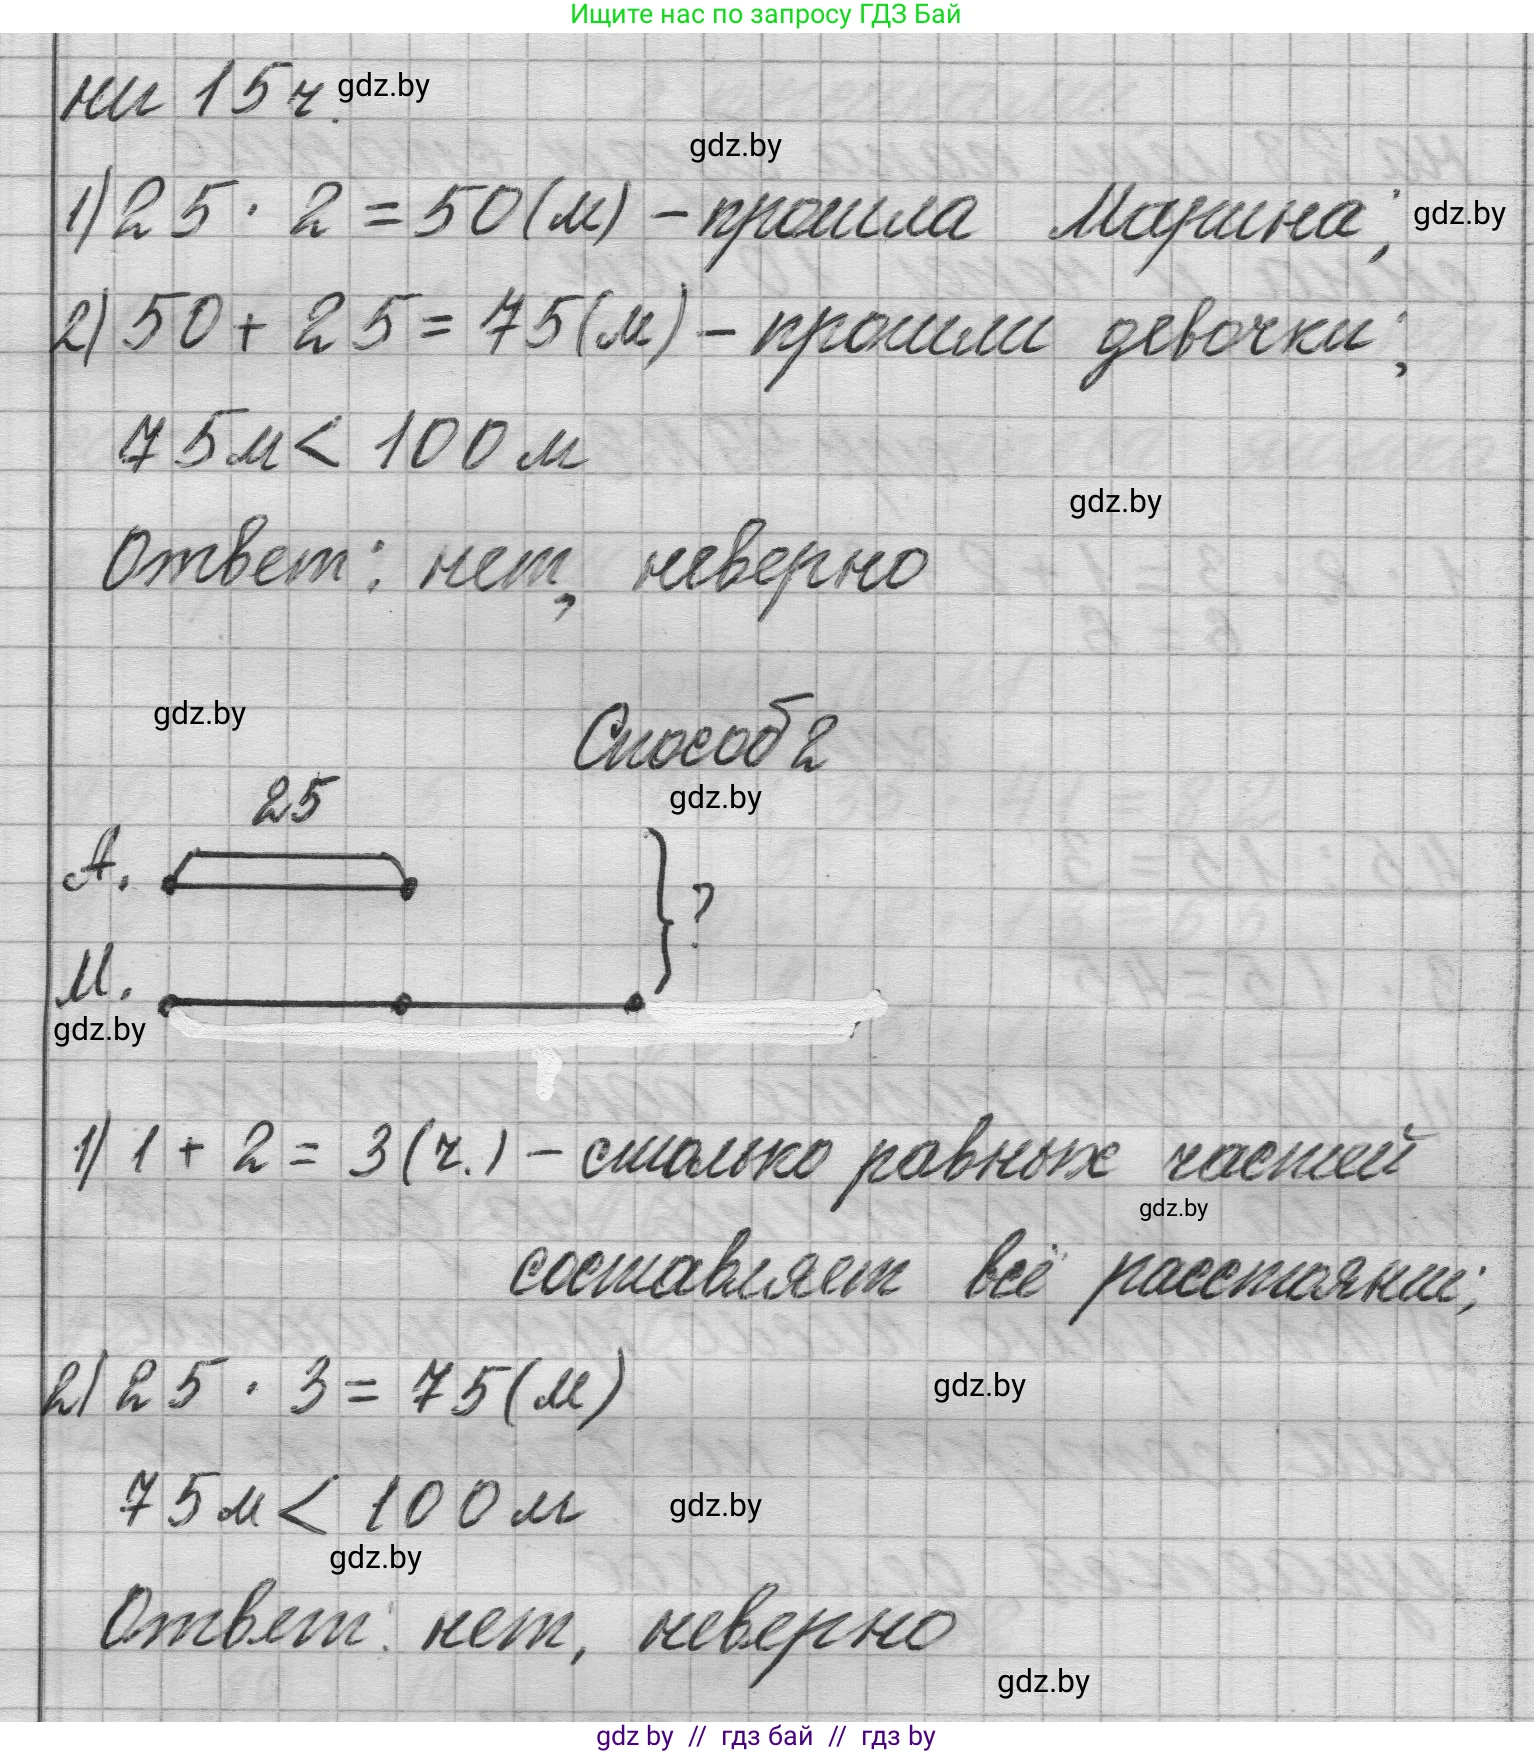 Ищите нас по запросу ГДЗ Бай
ни 15 ч. gdz.by
gdz.by
1) 25 · 2 = 50 (м) – прошла Марина; gdz.by
2) 50 + 25 = 75 (м) – прошли девочки;
75 м < 100 м
gdz.by
Ответ: нет, неверно
gdz.by
Способ 2
gdz.by
25
А.
?
М.
gdz.by
1) 1 + 2 = 3 (ч.) – столько равных частей
gdz.by
составляет всё расстояни;
2) 25 · 3 = 75 (м)
gdz.by
75 м < 100 м
gdz.by
gdz.by
Ответ: нет, неверно
gdz.by
gdz by // гдз бай // гдз by